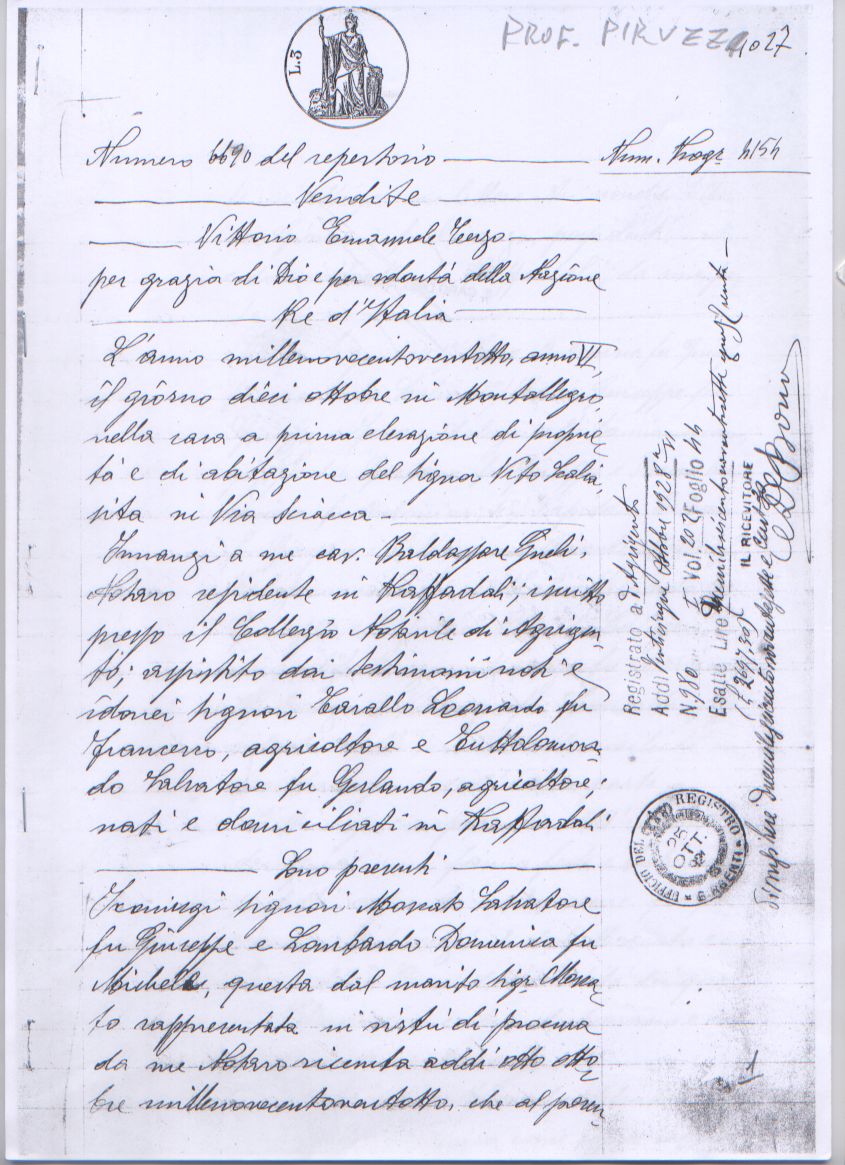 L.3
PROF. PIRUZZA
1027
Numero 6690 del repertorio
Num. Progr. 4154
Vendite
Vittorio Emanuele Terzo
per grazia di Dio e per volontà della Nazione
Re d'Italia
L'anno millenovecentoventotto, anno VI,
il giorno dieci ottobre in Montallegro,
nella casa a prima elevazione di proprie-
tà e di abitazione del signor Vito Scalia,
sita in Via Sciacca
Innanzi a me cav. Baldassare Gueli,
Notaro residente in Raffadali, iscritto
presso il Collegio Notarile di Agrigen-
to; assistito dai testimoni noti e
idonei signori Tarallo Leonardo fu
Francesco, agricoltore e Tuttolomon-
do Salvatore fu Gerlando, agricoltore
nati e domiciliati in Raffadali
Sono presenti
I coniugi signori Morcato Salvatore
fu Giuseppe e Lombardo Domenica fu
Michele, questa dal marito sigr. Morca-
to rappresentata in virtù di procura
da me Notaro ricevuta addì otto otto-
bre millenovecentoventotto, che al presen-
Registrato a d'Agrigento
Addì ottobre 1928 a VI
N. 980 I Vol. 202 Foglio 44
Esatte Lire
(£ 2697,30)
IL RICEVITORE
UFFICIO DEL REGISTRO
25 OTT.
1